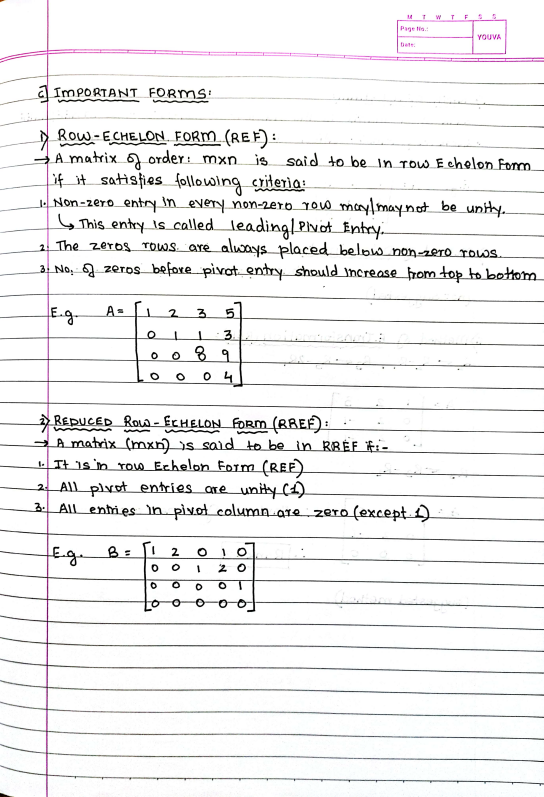 M T W T F S S
Page No.:
Date:
YOUVA
c] IMPORTANT FORMS:
1) ROW-ECHELON FORM (REF):
→ A matrix of order: mxn is said to be in row Echelon Form
if it satisfies following criteria:
1. Non-zero entry in every non-zero row may/maynot be unity.
↳ This entry is called leading/Pivot Entry.
2. The zeros rows are always placed below non-zero rows.
3. No. of zeros before pivot entry should increase from top to bottom
E.g. A = [1 2 3 5]
0 1 1 3
0 0 8 9
0 0 0 4
2) REDUCED ROW-ECHELON FORM (RREF):
→ A matrix (mxn) is said to be in RREF if:-
1. It is in row Echelon Form (REF)
2. All pivot entries are unity (1)
3. All entries in pivot column are zero (except 1)
E.g. B = [1 2 0 1 0]
0 0 1 2 0
0 0 0 0 1
0 0 0 0 0